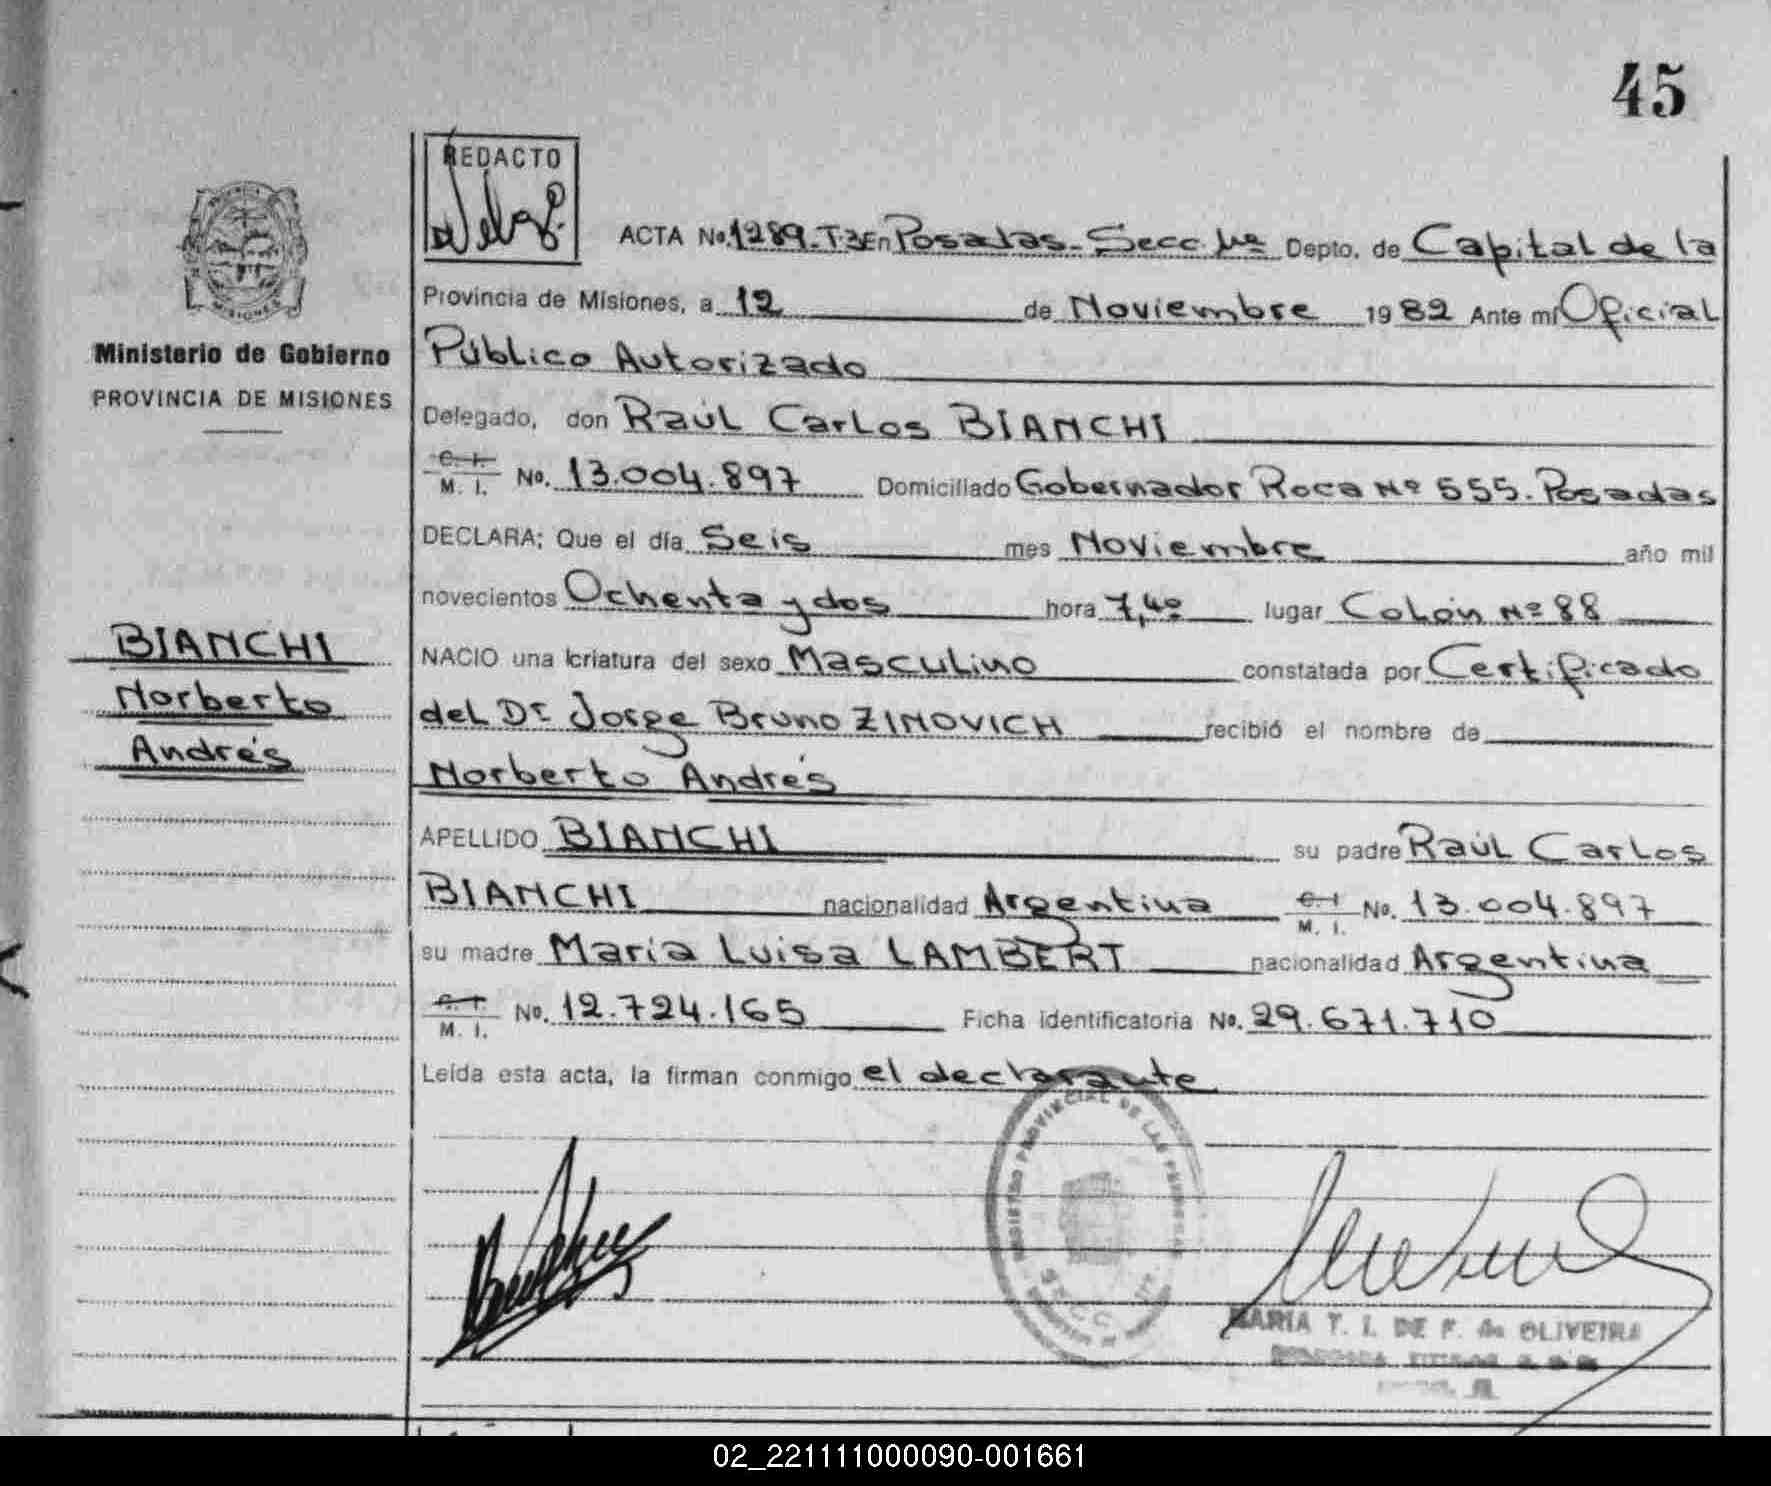 45
REDACTO
ACTA No. 1289-T-3 En Posadas - Secc. 1ª Depto. de Capital de la
Provincia de Misiones, a 12 de Noviembre 1982 Ante mí Oficial
Público Autorizado
Delegado, don Raúl Carlos BIANCHI
C. I.
M. I. No. 13.004.897 Domiciliado Gobernador Roca Nº 555. Posadas
DECLARA; Que el día Seis mes Noviembre año mil
novecientos Ochenta y dos hora 7,40 lugar Colón Nº 88
NACIO una criatura del sexo Masculino constatada por Certificado
del Dr Jorge Bruno ZINOVICH recibió el nombre de
Norberto Andrés
APELLIDO BIANCHI su padre Raúl Carlos
BIANCHI nacionalidad Argentina C. I. M. I. No. 13.004.897
su madre María Luisa LAMBERT nacionalidad Argentina
C. I.
M. I. No. 12.724.165 Ficha identificatoria No. 29.671.710
Leída esta acta, la firman conmigo el declarante
Ministerio de Gobierno
PROVINCIA DE MISIONES
BIANCHI
Norberto
Andrés
REGISTRO PROVINCIAL DE LAS PERSONAS
MARIA T. I. DE F. de OLIVEIRA
02_221111000090-001661